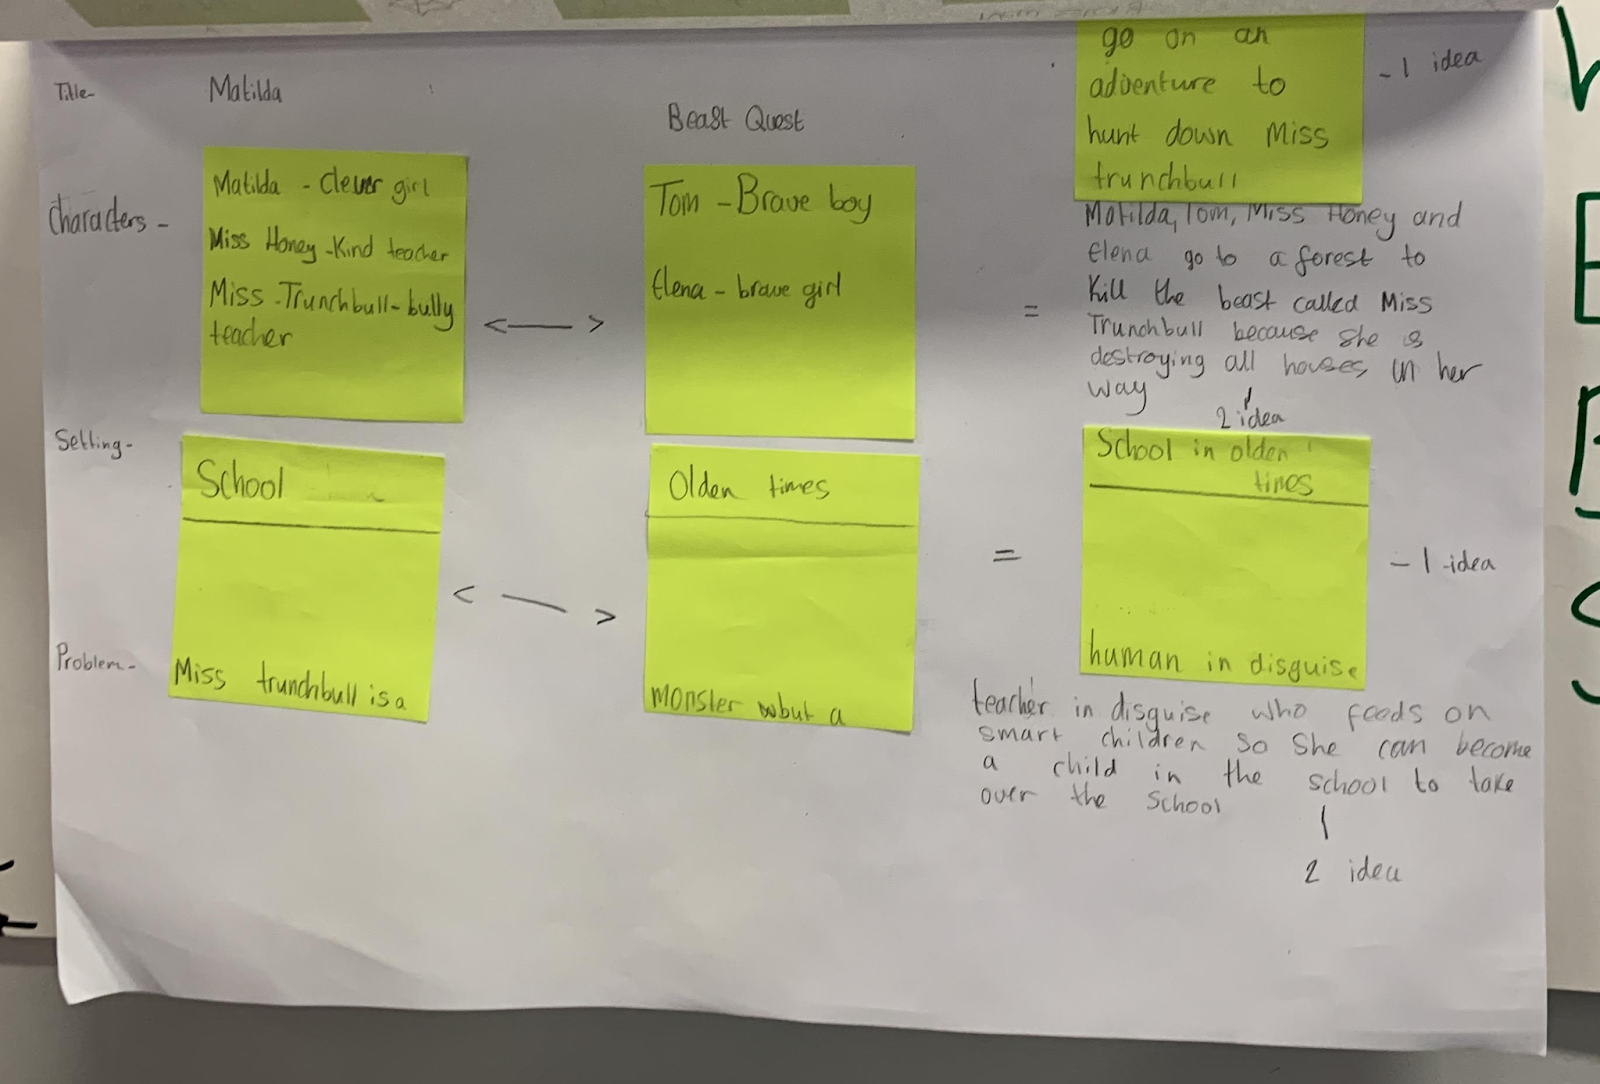 Title-
Matilda
Beast Quest
go on an
adventure to
hunt down Miss
trunchbull
- 1 idea
Characters -
Matilda - Clever girl
Miss Honey - Kind teacher
Miss - Trunchbull - bully
teacher
<—>
Tom - Brave boy
Elena - brave girl
=
Matilda, Tom, Miss Honey and
Elena go to a forest to
Kill the beast called Miss
Trunchbull because she is
destroying all houses in her
way
2 idea
Setting-
School
Olden times
School in olden
times
<—>
=
- 1 idea
Problem-
Miss trunchbull is a
monster but a
human in disguise
teacher in disguise who feeds on
smart children so she can become
a child in the school to take
over the school
2 idea